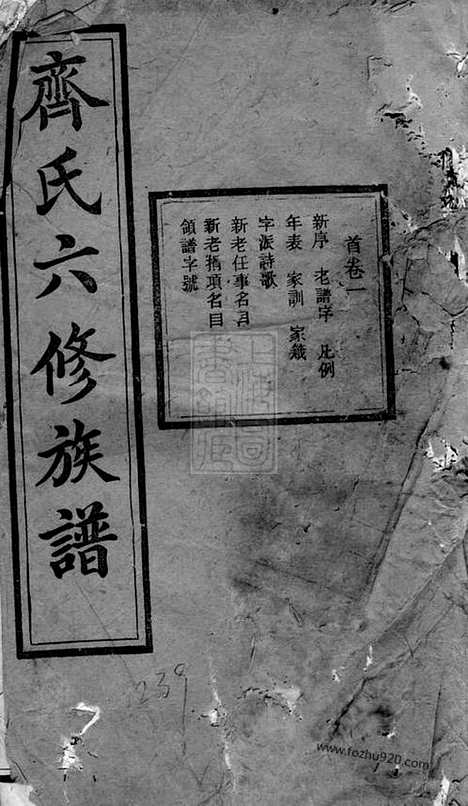 齊氏六修族譜
首卷一
新序 老譜序 凡例
年表 家訓 家箴
字派詩歌
新老任事名目
新老捐項名目
領譜字號
239
www.fozhu920.com